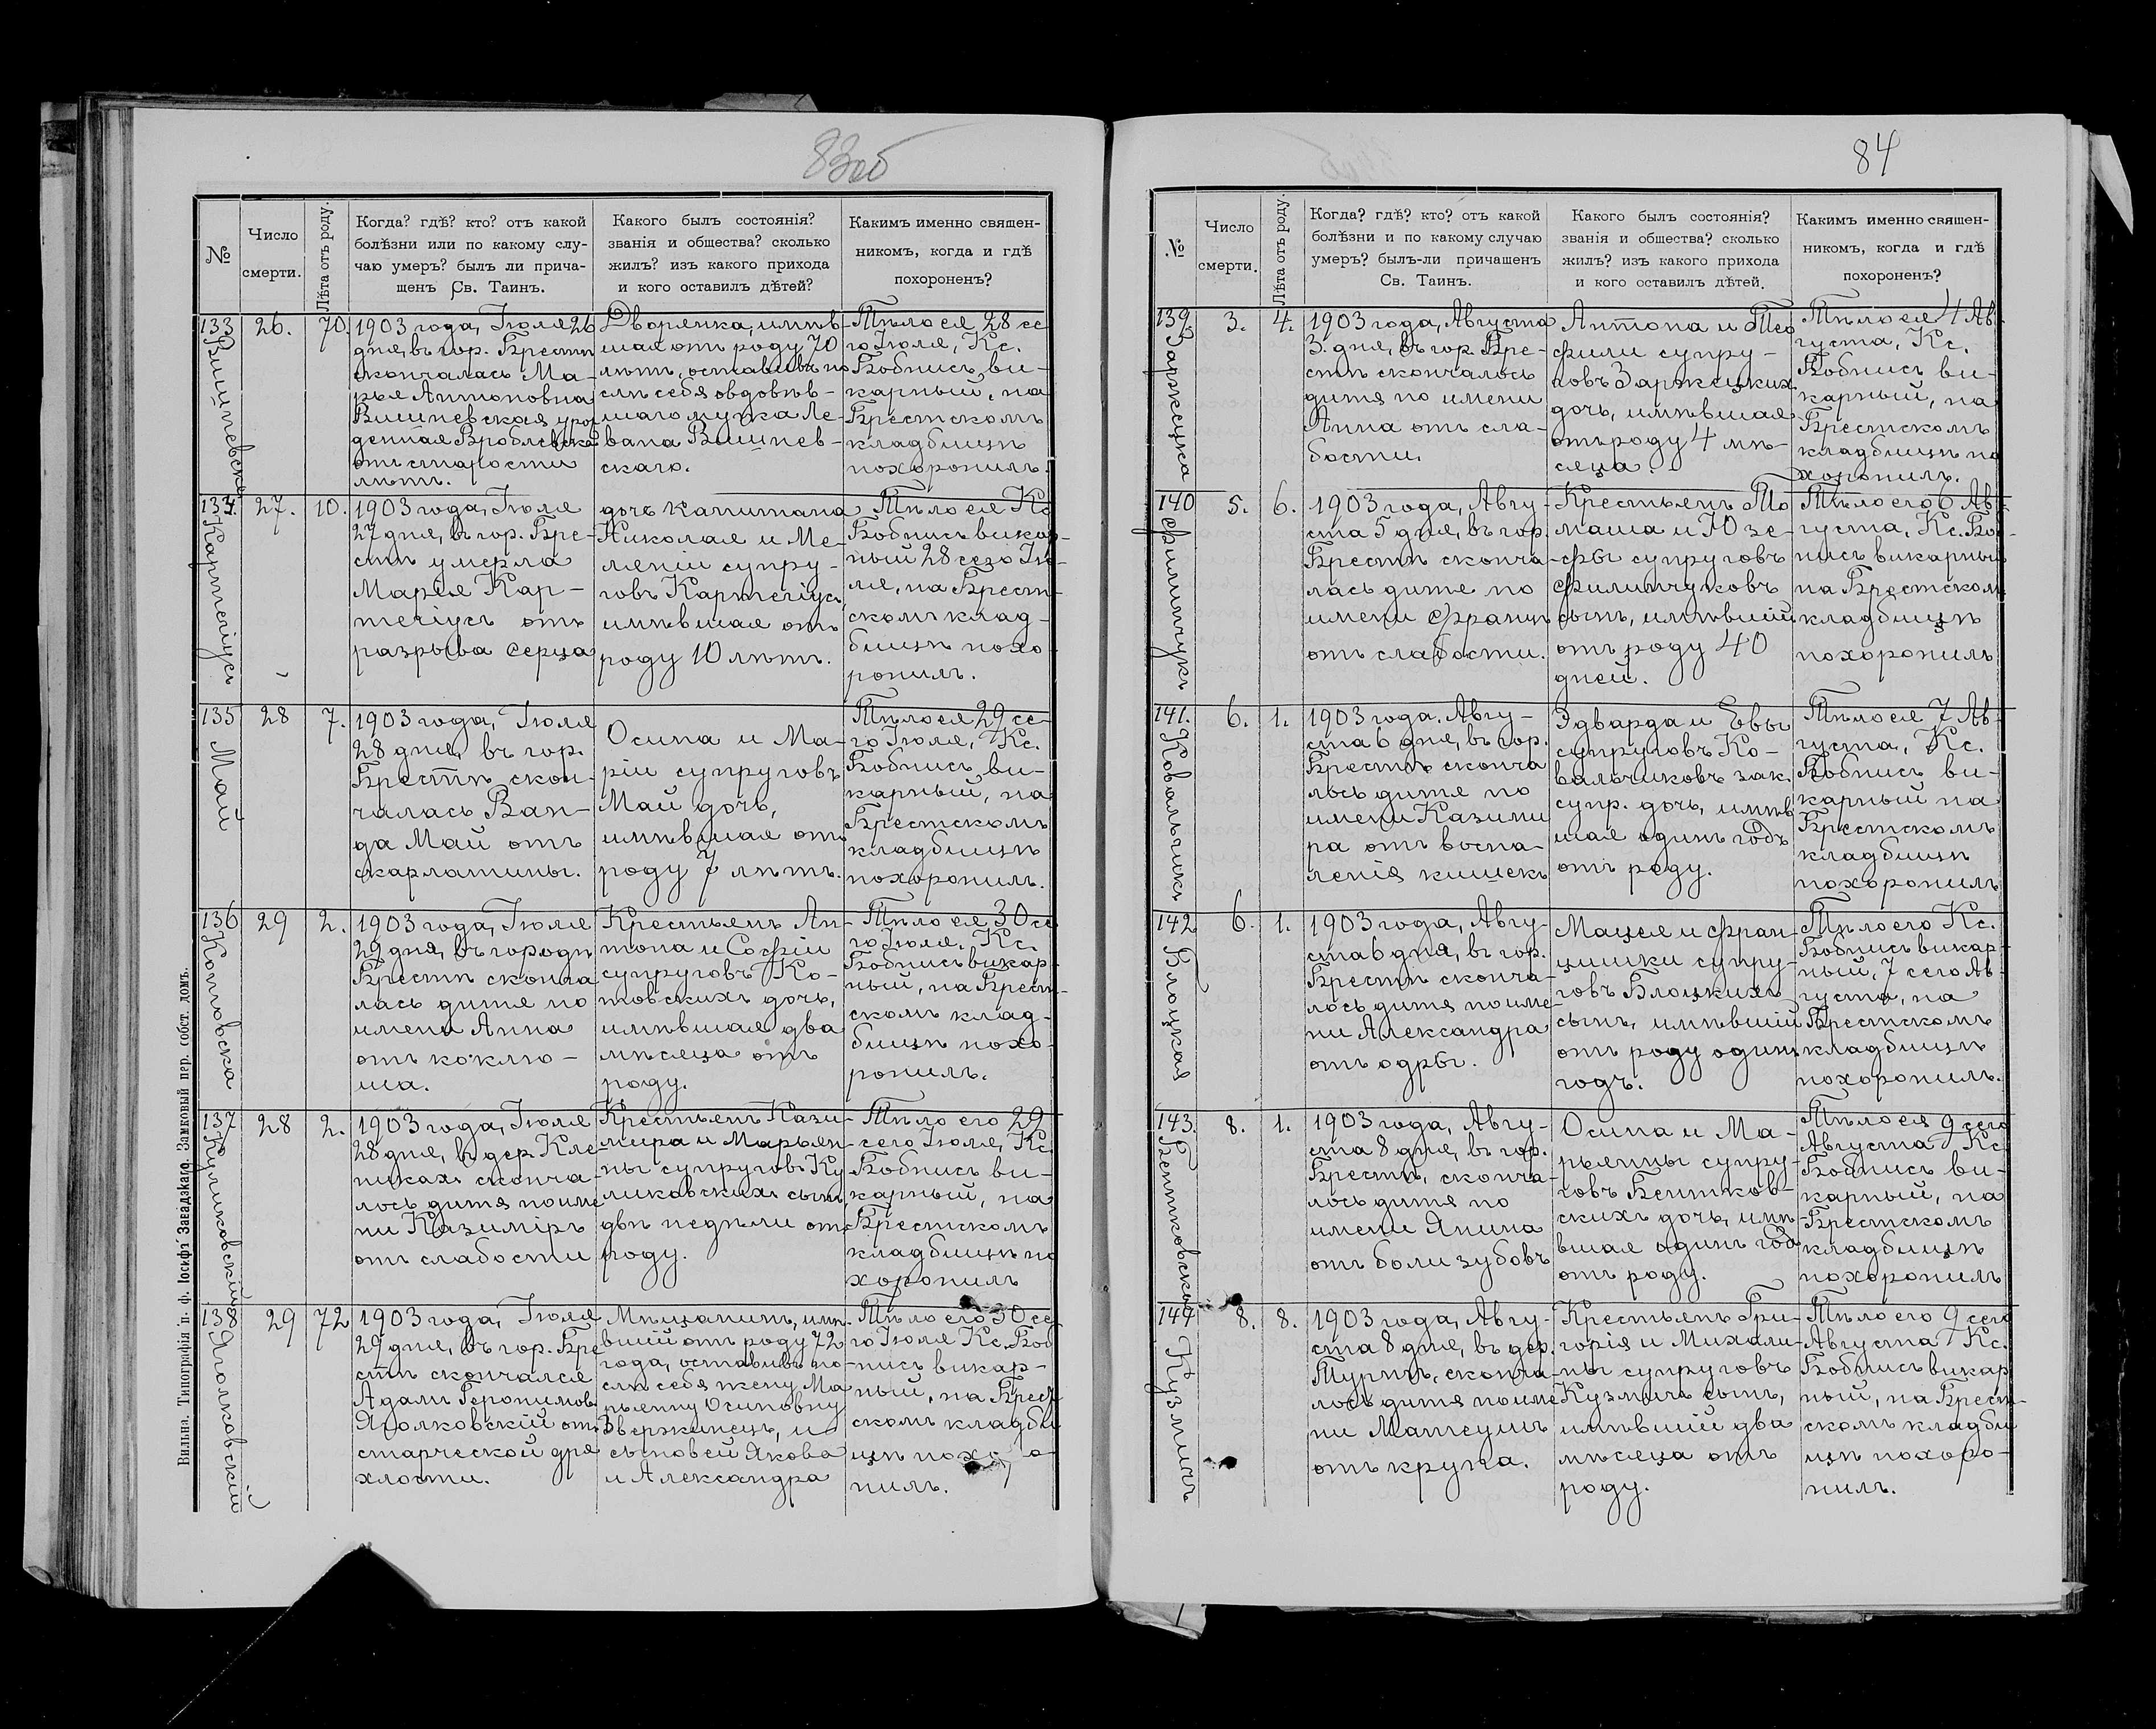 83об
№
Число
смерти.
Лѣта отъ роду.
Когда? гдѣ? кто? отъ какой
болѣзни или по какому слу-
чаю умеръ? былъ ли прича-
щенъ Св. Таинъ.
Какого былъ состоянія?
званія и общества? сколько
жилъ? изъ какого прихода
и кого оставилъ дѣтей?
Какимъ именно священ-
никомъ, когда и гдѣ
похороненъ?
133
Вишневска
26.
70
1903 года, Іюля 26
дня, въ гор. Брестѣ
скончалась Ма-
рья Антоновна
Вишневская урож
денная Вроблевска
отъ старости
лѣтъ.
Дворянка, имѣв-
шая отъ роду 70
лѣтъ, оставивъ по
слѣ себя овдовѣв-
шаго мужа Ле-
вана Вишнев-
скаго.
Тѣло ея 28 се
го Іюля, Кс.
Бобнисъ ви-
карный, на
Брестскомъ
кладбищѣ
похоронилъ.
134
Картечіусъ
27.
10.
1903 года, Іюля
27 дня, въ гор. Бре-
стѣ умерла
Марія Кар-
течіусъ отъ
разрыва серца
дочь капитана
Николая и Ме-
леніи супру-
говъ Картечіусъ,
имѣвшая отъ
роду 10 лѣтъ.
Тѣло ея Кс
Бобнисъ викар-
ный 28 сего Ію-
ля, на Брест-
скомъ клад-
бищѣ похо-
ронилъ.
135
Май
28
7.
1903 года, Іюля
28 дня, въ гор.
Брестѣ скон-
чалась Ван-
да Май отъ
скарлатины.
Осипа и Ма-
ріи супруговъ
Май дочь,
имѣвшая отъ
роду 7 лѣтъ.
Тѣло ея 29 се-
го Іюля, Кс.
Бобнисъ ви-
карный, на
Брестскомъ
кладбищѣ
похоронилъ.
136
Котовска
29
2.
1903 года, Іюля
29 дня, въ городѣ
Брестѣ сконча
лась дитя по
имени Анна
отъ коклю-
ша.
Крестьянъ Ан-
тона и Софіи
супруговъ Ко-
товскихъ дочь,
имѣвшая два
мѣсяца отъ
роду.
Тѣло ея 30 се
го Іюля, Кс.
Бобнисъ викар-
ный, на Брест-
скомъ клад-
бищѣ похо-
ронилъ.
137
Куликовскій
28
2.
1903 года, Іюля
28 дня, въ дер. Кле-
никахъ сконча-
лось дитя по име
ни Казиміръ
отъ слабости
Крестьянъ Кази-
мира и Марьян-
ны супруговъ Ку
ликовскихъ сынъ,
двѣ недѣли отъ
роду.
Тѣло его 29
сего Іюля, Кс.
Бобнисъ ви-
карный, на
Брестскомъ
кладбищѣ по
хоронилъ
138
Яголковскій
29
72
1903 года, Іюля
29 дня, въ гор. Бре
стѣ скончался
Адамъ Геронимов.
Яголковскій отъ
старческой дря
хлости.
Мѣщанинъ, имѣ-
вшій отъ роду 72
года, оставивъ по-
слѣ себя жену Ма
рьянну Осиповну
Звержинецъ, и
сыновей Якова
и Александра
Тѣло его 30 се
го Іюля Кс. Боб
нисъ викар-
ный, на Брест
скомъ кладби
щѣ похо о
нилъ.
Вильна. Типографія п. ф. Іосифъ Завадзкаго. Замковый пер. собст. домъ.
84
№
Число
смерти.
Лѣта отъ роду.
Когда? гдѣ? кто? отъ какой
болѣзни и по какому случаю
умеръ? былъ-ли причашенъ
Св. Таинъ.
Какого былъ состоянія?
званія и общества? сколько
жилъ? изъ какого прихода
и кого оставилъ дѣтей.
Какимъ именно священ-
никомъ, когда и гдѣ
похороненъ?
139
Заржецка
3.
4.
1903 года, Августа
3. дня, въ гор. Бре-
стѣ скончалось
дитя по имени
Анна отъ сла-
бости.
Антона и Тео
фили супру-
говъ Заржецких
дочь, имѣвшая
отъ роду 4 мѣ-
сяца.
Тѣло ея 4 Ав-
густа, Кс.
Бобнисъ ви-
карный, на
Брестскомъ
кладбищѣ по
хоронилъ.
140
Филипчукъ
5.
6.
1903 года, Авгу-
ста 5 дня, въ гор.
Брестѣ сконча-
лась дитя по
имени Францъ
отъ слабости.
Крестьянъ То
маша и Юзе-
фы супруговъ
Филипчуковъ
сынъ, имѣвшій
отъ роду 40
дней.
Тѣло его 6 Ав-
густа, Кс. Боб-
нисъ викарный
на Брестском
кладбищѣ
похоронилъ
141.
Ковальчикъ
6.
1.
1903 года, Авгу-
ста 6 дня, въ гор.
Брестѣ сконча
лось дитя по
имени Казими
ра отъ воспа-
ленія кишекъ
Эдварда и Евы
супруговъ Ко-
вальчиковъ зак.
супр. дочь, имѣв
шая одинъ годъ
отъ роду.
Тѣло ея 7 Ав-
густа, Кс.
Бобнисъ ви-
карный на
Брестскомъ
кладбищѣ
похоронилъ
142
Блоцкая
6.
1.
1903 года, Авгу-
ста 6 дня, въ гор.
Брестѣ сконча-
лось дитя по име
ни Александра
отъ одры.
Мацея и Фран-
цишки супру-
говъ Блоцкихъ
сынъ, имѣвшій
отъ роду одинъ
годъ.
Тѣло его Кс.
Бобнисъ викар-
ный, 7 сего Ав-
густа, на
Брестскомъ
кладбищѣ
похоронилъ.
143.
Бентковска
8.
1.
1903 года, Авгу-
ста 8 дня, въ гор.
Брестѣ, сконча-
лось дитя по
имени Янина
отъ боли зубовъ
Осипа и Ма-
рьянны супру-
говъ Бентков-
скихъ дочь, имѣ
вшая одинъ годъ
отъ роду.
Тѣло ея 9 сего
Августа, Кс.
Бобнисъ ви-
карный, на
Брестскомъ
кладбищѣ
похоронилъ
144
Кузмичъ
8.
8.
1903 года, Авгу-
ста 8 дня, въ дер.
Турнѣ, сконча-
лось дитя по име
ни Матеушъ
отъ крупа.
Крестьянъ Гри-
горія и Михали-
ны супруговъ
Кузмичъ сынъ,
имѣвшій два
мѣсяца отъ
роду.
Тѣло его 9 сего
Августа Кс.
Бобнисъ викар
ный, на Брест-
скомъ кладби
щѣ похоро-
нилъ.